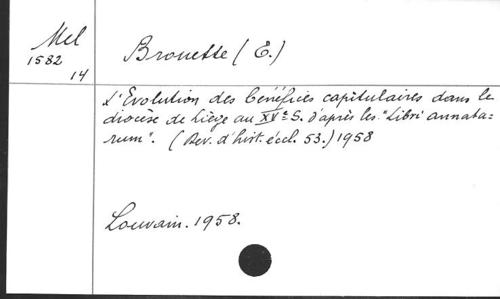 Mel
1582
14
Brouette (E.)
L'Evolution des bénéfices capitulaires dans le
diocèse de Liège au XVe S. d'après les "Libri annata-
rum". (Rev. d'hist. éccl. 53.) 1958
Louvain. 1958.